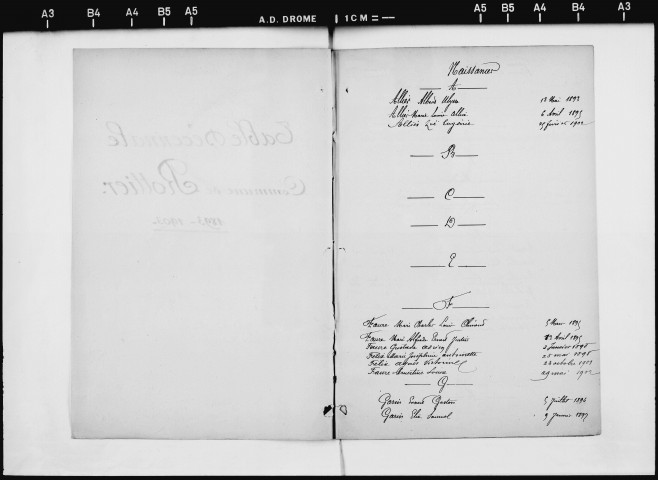 A3 B4 A4 B5 A5 A.D. DROME 1 CM = A5 B5 A4 B4 A3
Table Décennale
Commune de Rottier.
1893 - 1902.
Naissances
A
Allies Albéric Ulysse 13 Mai 1893
Allies Marie Louise 6 Avril 1895
Eugénie 25 février 1902
B
C
D
E
F
Faure Marie Charles Louis 5 Mars 1895
Faure Marie Alfred Ernest Justin 23 Avril 1895
Faure Gustave 2 janvier 1896
Félix Marie Joséphine Antoinette 25 mai 1896
Félix 23 octobre 1901
Faure 29 mai 1902
G
Garin Ernest Gaston 5 Juillet 1896
Garin Elie Samuel 9 Janvier 1897